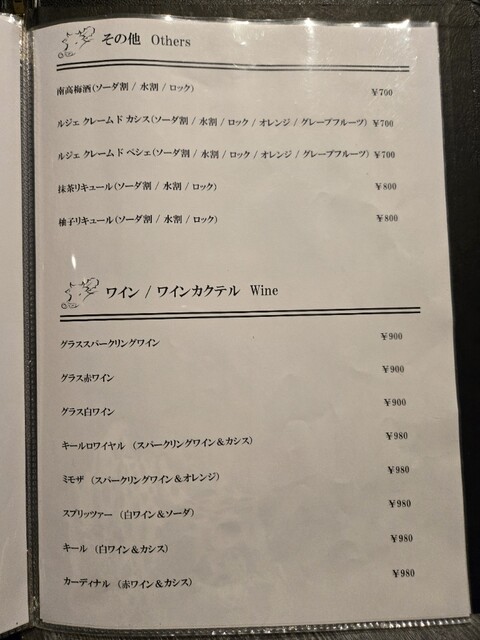 その他 Others
南高梅酒(ソーダ割 / 水割 / ロック) ¥700
ルジェ クレームド カシス(ソーダ割 / 水割 / ロック / オレンジ / グレープフルーツ) ¥700
ルジェ クレームド ペシェ(ソーダ割 / 水割 / ロック / オレンジ / グレープフルーツ) ¥700
抹茶リキュール(ソーダ割 / 水割 / ロック) ¥800
柚子リキュール(ソーダ割 / 水割 / ロック) ¥800
ワイン / ワインカクテル Wine
グラススパークリングワイン ¥900
グラス赤ワイン ¥900
グラス白ワイン ¥900
キールロワイヤル (スパークリングワイン&カシス) ¥980
ミモザ (スパークリングワイン&オレンジ) ¥980
スプリッツァー (白ワイン&ソーダ) ¥980
キール (白ワイン&カシス) ¥980
カーディナル (赤ワイン&カシス) ¥980